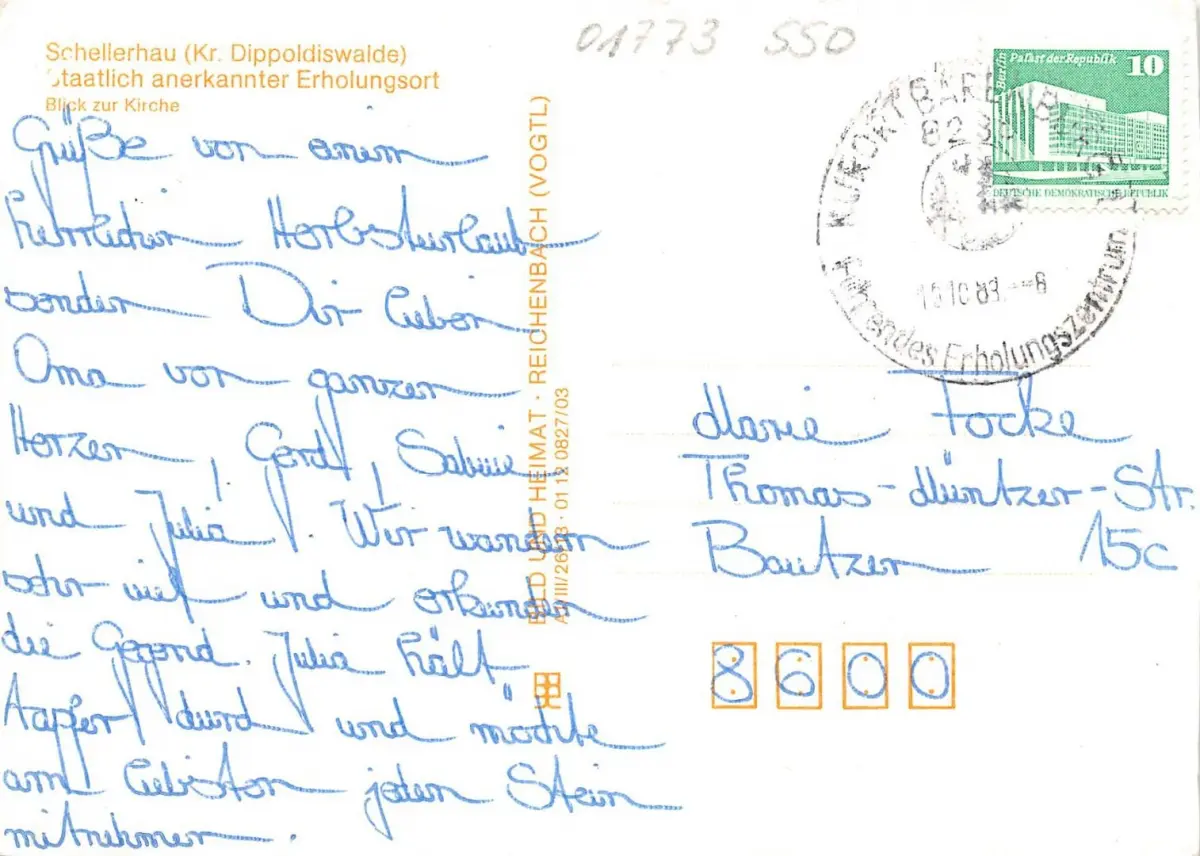 01773 550
Schellerhau (Kr. Dippoldiswalde)
Staatlich anerkannter Erholungsort
Blick zur Kirche
Grüße von einem
herrlichen Herbsturlaub
senden Dir liebe
Oma von ganzen
Herzen, Gerd, Sabine
und Julia. Wir wandern
sehr viel und erkunden
die Gegend. Julia hält
tapfer durch und möchte
am liebsten jeden Stein
mitnehmen.
BILD UND HEIMAT · REICHENBACH (VOGTL)
01 12 0827/03
Berlin Palast der Republik 10
DEUTSCHE DEMOKRATISCHE REPUBLIK
KURORT BÄRENBURG
Führendes Erholungszentrum
Marie Focke
Thomas-Müntzer-Str.
Bautzen 15c
8600